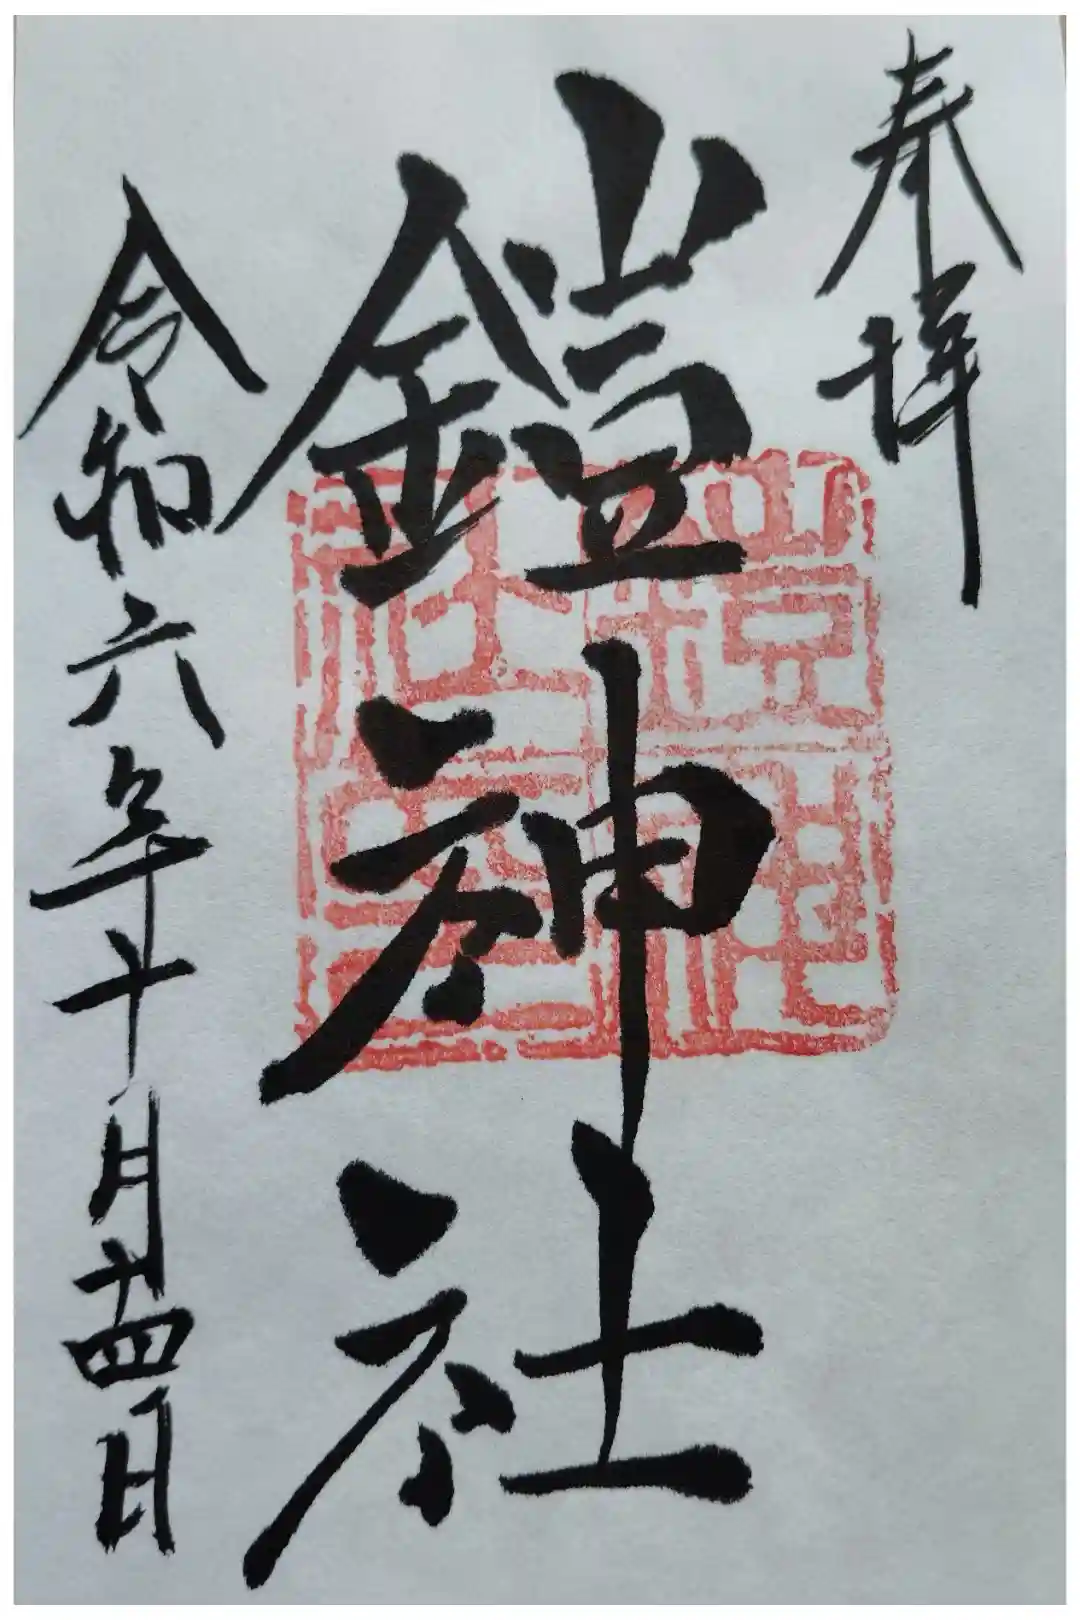 奉拝
鎧神社
令和六年十月十四日